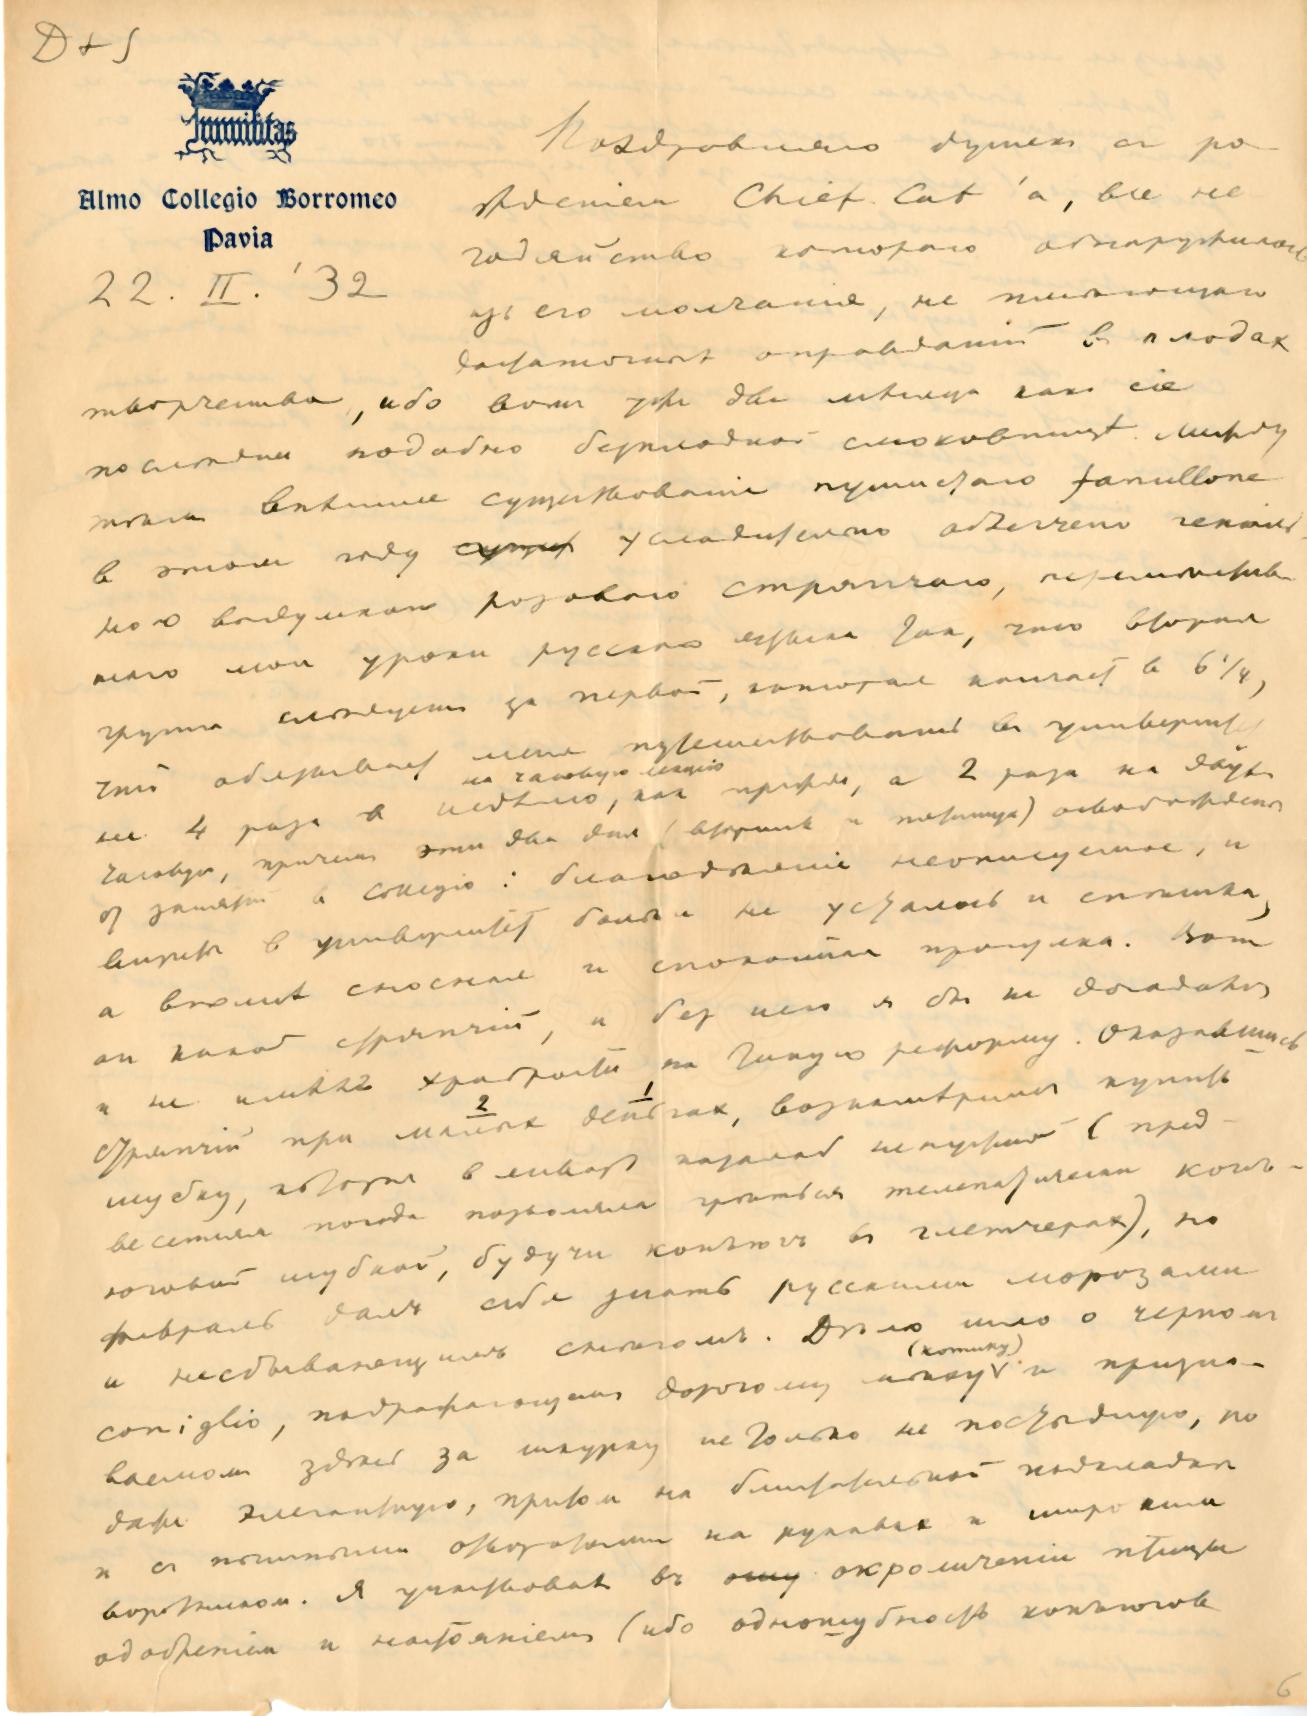 D + S
Humilitas
Almo Collegio Borromeo
Pavia
22. II. '32
Поздравляю душек съ ро-
ждением Chief. Cat 'а, все не
годяйство котораго обнаружилось
изъ его молчанія, не имеющаго
достаточных оправданій въ плодах
творчества, ибо вот уже два месяца как сіе
последнее подобно безплодной смоковнице. Между
тем внешнее существованіе пушистаго fanullone
в этом году усладительно облегчено геніаль-
ною выдумкою розоваго стряпчаго, переместив-
шаго мои уроки русскаго языка так, что вторая
группа следует за первой, которая кончает в 6 1/4,
что обязывает меня путешествовать въ университет
не 4 раза в неделю, на часовую лекцію как прежде, а 2 раза на двух
часовую, причем эти два дня (вторник и пятница) освобождены
от занятій в Collegio: благодеяніе неописуемое, и
визиты в университет больше не усталость и спешка,
а вполне сносная и спокойная прогулка. Вот
он какой стряпчій, и без него я бы не догадался
и не имелъ храбрости на такую реформу. Оказавшись
стряпчій при малых 2 деньгах 1, вознамерился купить
шубку, которая в январе казалась ненужной (пред-
весенняя погода позволяла греться телепатически котъ-
юговой шубкой, будучи котъюгъ въ глетчерах), но
февраль далъ себя знать русскими морозами
и несбывающимъ снегомъ. Дело шло о черном
coniglio, подражающем дорогому (котику) и призна-
ваемом здесь за шкурку не только не постыдную, но
даже элегантную, притом на блистательной подкладке
и съ пышными отворотами на рукавах и широким
воротником. Я участвовал въ окроличеніи птицы
одобреніем и настояніем (ибо одношубность котъюгов
6